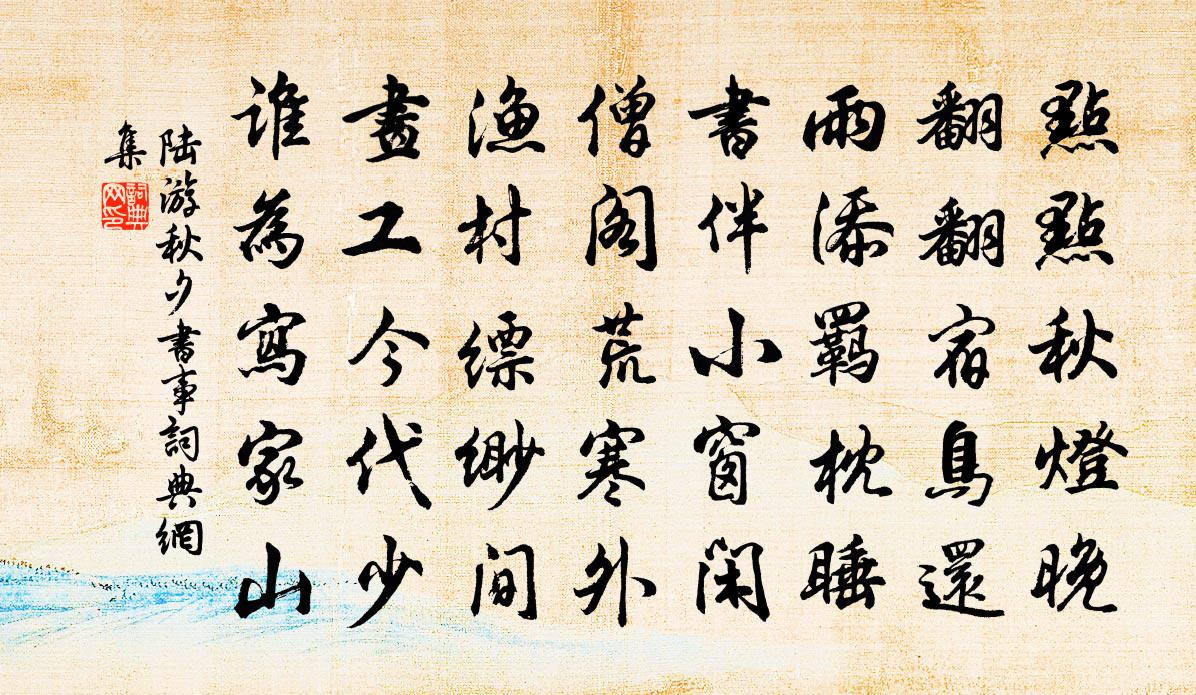 點點秋燈晚
翻翻宿鳥還
雨添羇枕睡
書伴小窗閑
僧閣荒寒外
漁村縹緲間
畫工今代少
誰為寫家山
陆游秋夕書事詞典網
集
詞典
网印